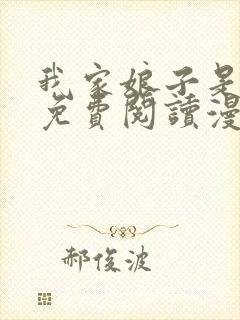 我家娘子是
免費閱讀漫
郝俊波